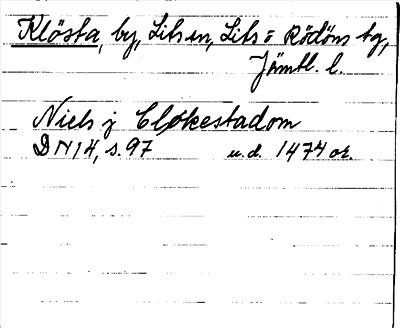 Klösta, by, Lits sn, Lits = Rödöns tg,
Jämtl. l.
Niels j Cløkestadom
DN 14, s. 97 u.d. 1474 or.